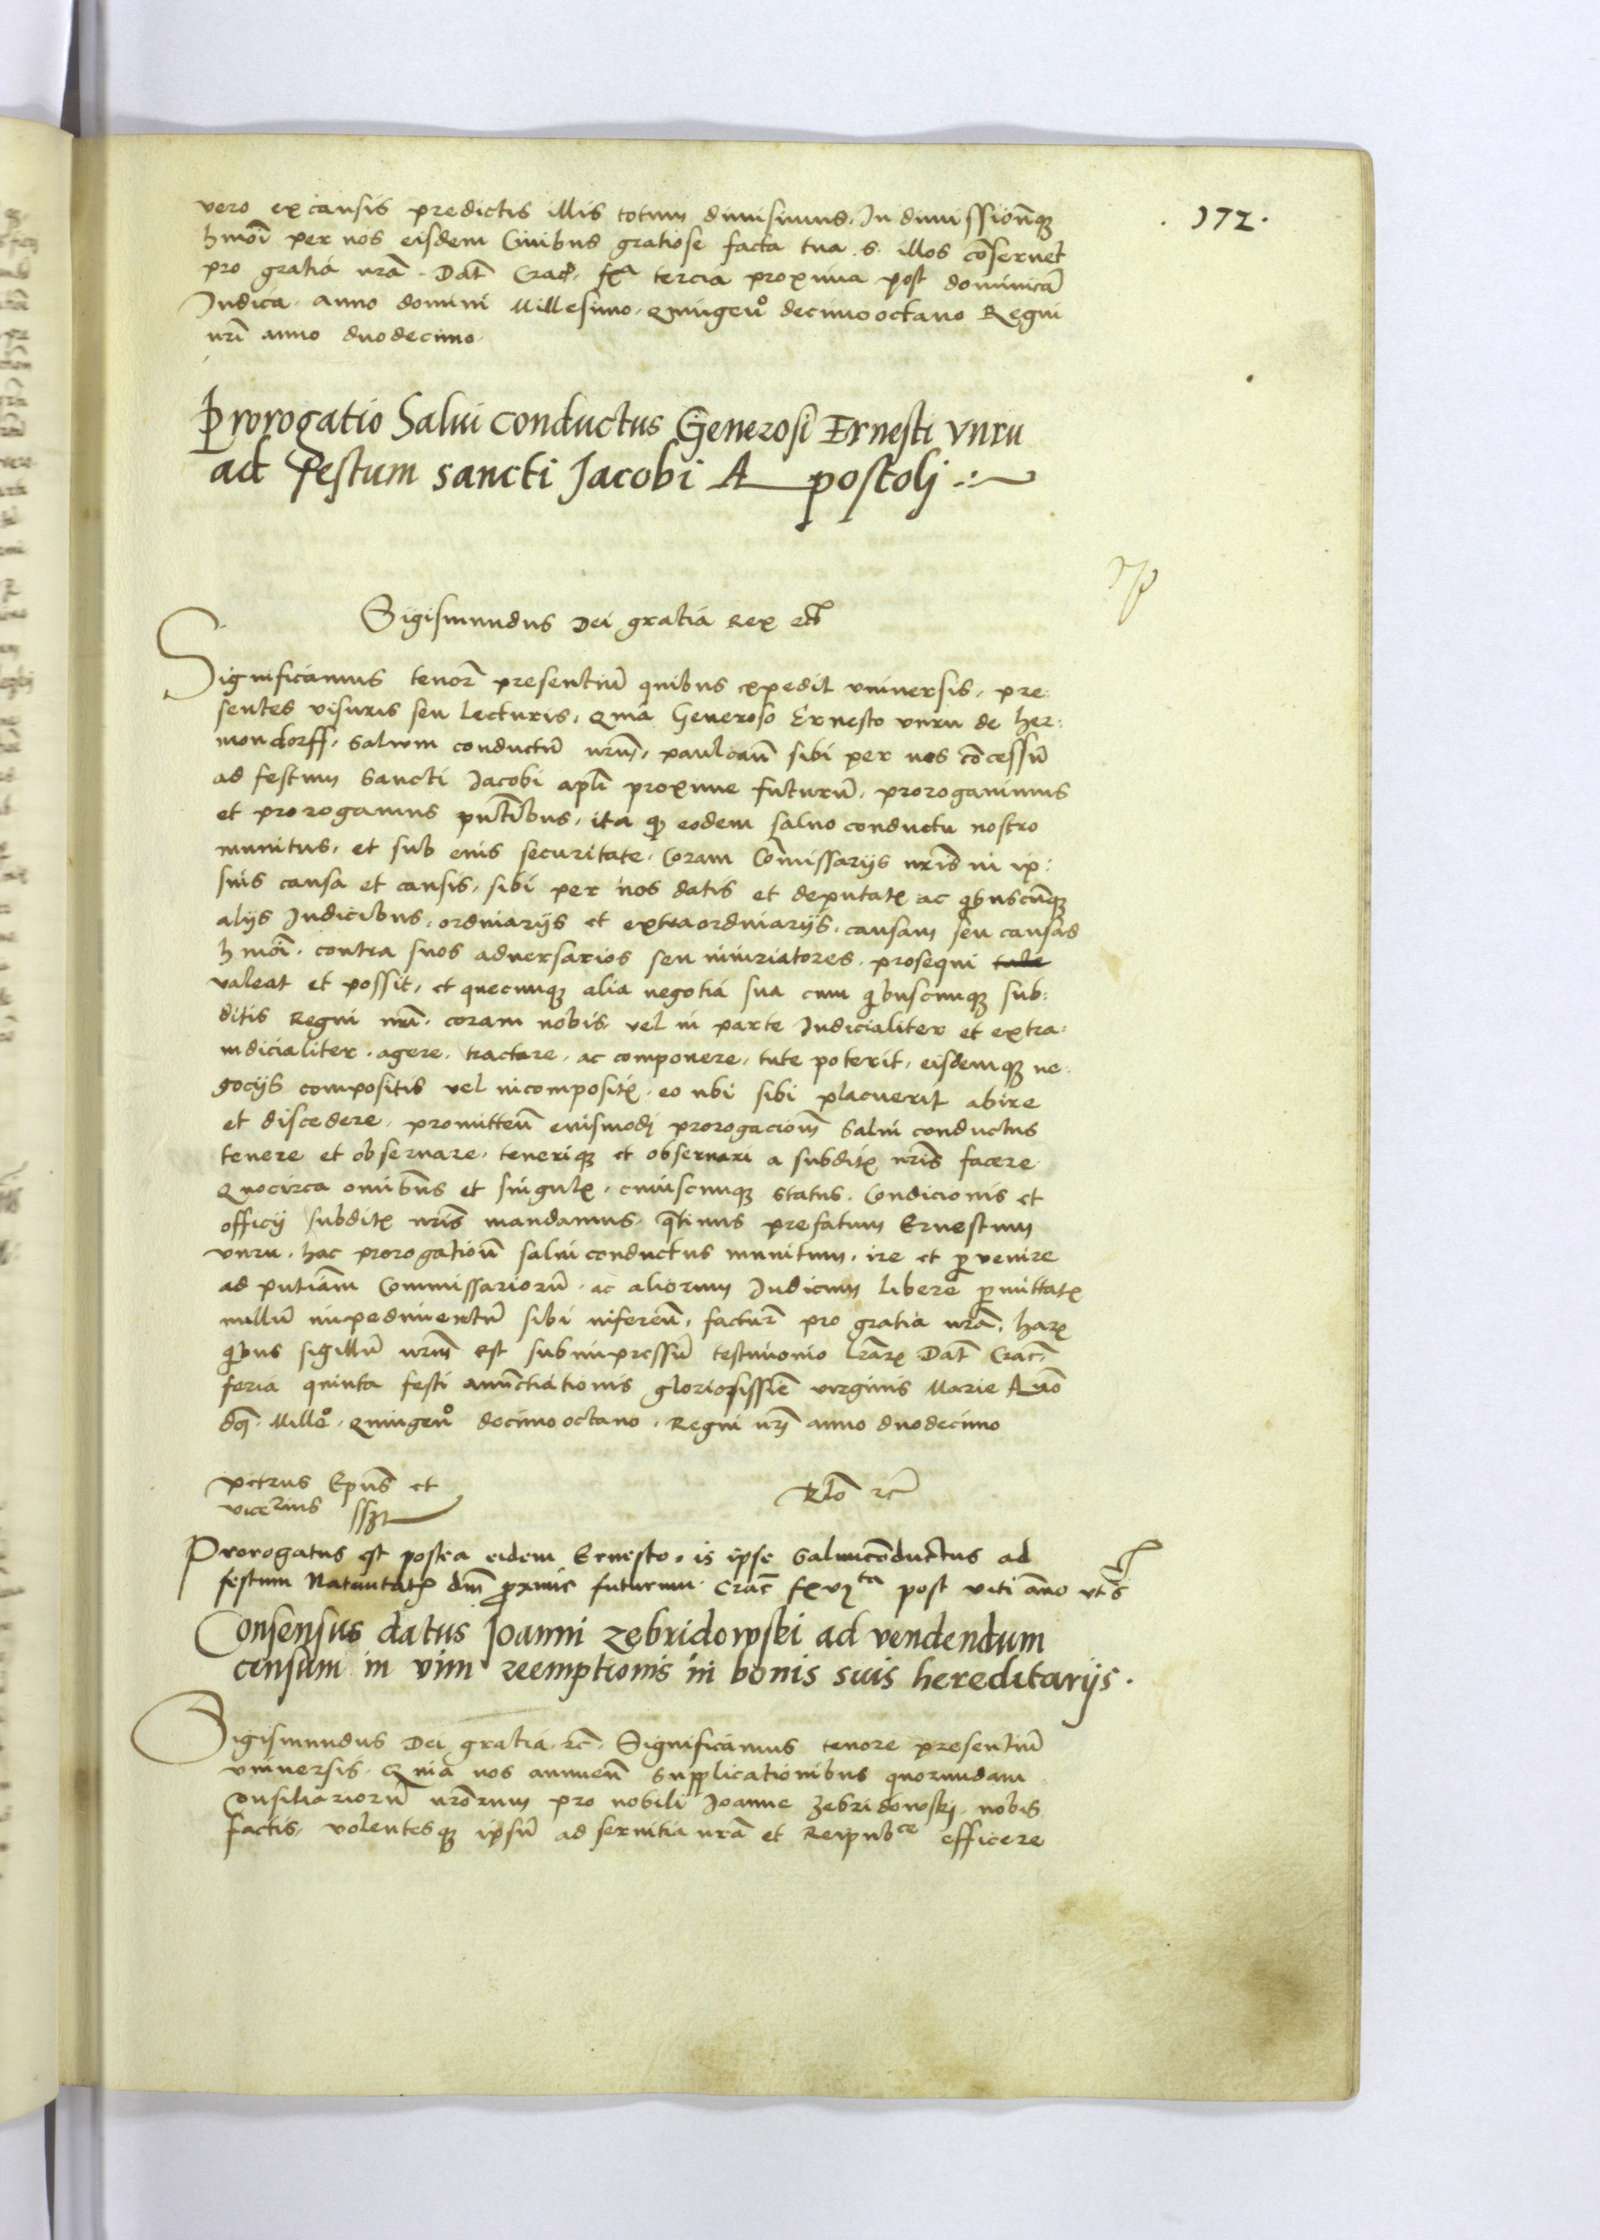 . 172 .
vero ex causis predictis illis totum dimisimus. In dimissionēq3
hmoī per nos eisdem Civibus gratiose facta tua .S. illos cōservet
pro gratia nrā. Datˉ Crac. fxᵃ tercia proxima post dominicā
Iudica. anno domini Millesimo. Quingenᵒ decimooctavo Regni
nrī anno duodecimo.
Prorogatio Salvi conductus Generosi Ernesti vnru
ad Festum sancti Jacobi Apostolj
Sigismundus Dei gratia Rex etc
Significamus tenorē presentiū quibus expedit vniversis, pre:
sentes visuris seu lecturis, Quia Generoso Ernesto vnru de Her:
mondorff, Salvum conductū nrūm, paulo aūn sibi per nos cōcessū
ad festum Sancti Jacobi aplī proxime futurū, prorogavimus
et prorogamus pntībus, ita qd eodem salvo conductu nostro
munitus, et sub eius securitate, Coram Comissarijs nrīs in ip:
sius causa et causis, sibi per nos datis et deputatꝭ ac qbuscūq3
alijs Iudicibus, ordinarijs et extraordinarijs, causam seu causas
hmoī. contra suos adversarios seu iniuriatores, prosequi
valeat et possit, et quecumq3 alia negotia sua cum qbuscumq3 sub:
ditis Regni nrī, coram nobis, vel in parte Iudicialiter et extra:
iudicialiter, agere, tractare, ac componere, tute poterit, eisdemq3 ne:
gocijs compositis vel incompositꝭ, eo ubi sibi placuerit abire
et discedere, promitteñ euismodi prorogacionē Salvi conductus
tenere et observare, teneriq3 et observari a subditꝭ nrīs facere
Quocirca omībus et singulꝭ, cuiuscumq3 status, Condicionis et
officij subditꝭ nrīs mandamus, qtīnus prefatum Ernestum
vnru, hac prorogationē salvi conductus munitum, ire et pervenire
ad pntiām Commissariorū, ac aliorum Iudicum libere permittatꝭ
nullū impedimentū sibi inferēn, facturī pro gratia nrā, harꝭ
qbus sigillū nrūm est subimpressū testimonio lrārꝭ Datˉ Cracˉ
feria quinta festi anūctiationis gloriosissīe virginis Marie Anō
dnj Milloᵒ. Quingenᵒ decimooctavo, Regni nrī anno duodecimo
Petrus Epūs et
vicecrius sszt
Rlō rc
Prorogatus est postea eidem Ernesto. is ipse Salvuscōductus ad
festum Nativitatꝭ dnī proxime futurum. Cracˉ fx vjᵗᵃ post viti anno ut sˉ
Consensus datus Joanni Zebridowski ad vendendum
censum in vim reemptionis in bonis suis hereditarijs.
Sigismundus Dei gratia rc. Significamus tenore presentiū
vniversis. Quia nos annueñ Supplicationibus quorundam
Consiliariorū nrōrum pro nobili Joanne Zebridowskj, nobis
factis, volentesq3 ipsū ad servitia nrā et Reipubᶜᵉ efficere